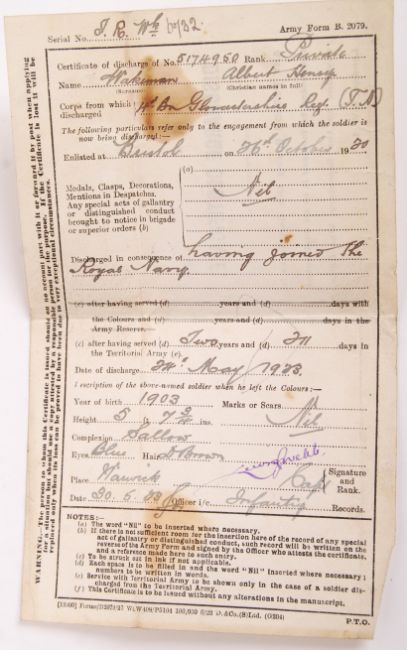 Serial No. T. R. Wk 60/32. Army Form B. 2079.
Certificate of discharge of No. 5174950 Rank Private
Name Wakeman Albert Henry
(Surname) (Christian names in full)
Corps from which discharged 4th Bn Gloucestershire Reg. (T.A)
The following particulars refer only to the engagement from which the soldier is now being discharged:—
Enlisted at Bristol on 26th October 1920
Medals, Clasps, Decorations, Mentions in Despatches, Any special acts of gallantry or distinguished conduct brought to notice in brigade or superior orders (b)
(a)
Nil
Discharged in consequence of having joined the
Royal Navy.
(c) after having served (d) years and (d) days with
the Colours and (d) years and (d) days in the
Army Reserve.
(c) after having served (d) Two years and (d) 211 days in
the Territorial Army (e).
Date of discharge 24th May 1923
Description of the above-named soldier when he left the Colours:—
Year of birth 1903 Marks or Scars
Height 5 ft. 7 3/4 ins. Nil
Complexion Sallow
Eyes Blue Hair D Brown
Capt Signature and Rank.
Place Warwick
Date 30.5.23 Officer i/c. Infantry Records.
NOTES:—
(a) The word "Nil" to be inserted where necessary.
(b) If there is not sufficient room for the insertion here of the record of any special
act of gallantry or distinguished conduct, such record will be written on the
reverse of the Army Form and signed by the Officer who attests the certificate,
and a reference made to such entry.
(c) To be struck out in ink if not applicable.
(d) Each space is to be filled in and the word "Nil" Inserted where necessary;
numbers to be written in words.
(e) Service with Territorial Army to be shown only in the case of a soldier dis-
charged from the Territorial Army.
(f) This Certificate is to be issued without any alterations in the manuscript.
P.T.O.
WARNING.—The person to whom this Certificate is issued should on no account part with it or forward it by post when applying
for a situation but should use a copy attested by a responsible person for the purpose. If the Certificate is lost it will be
replaced only where its loss can be proved to have been due to very exceptional circumstances.